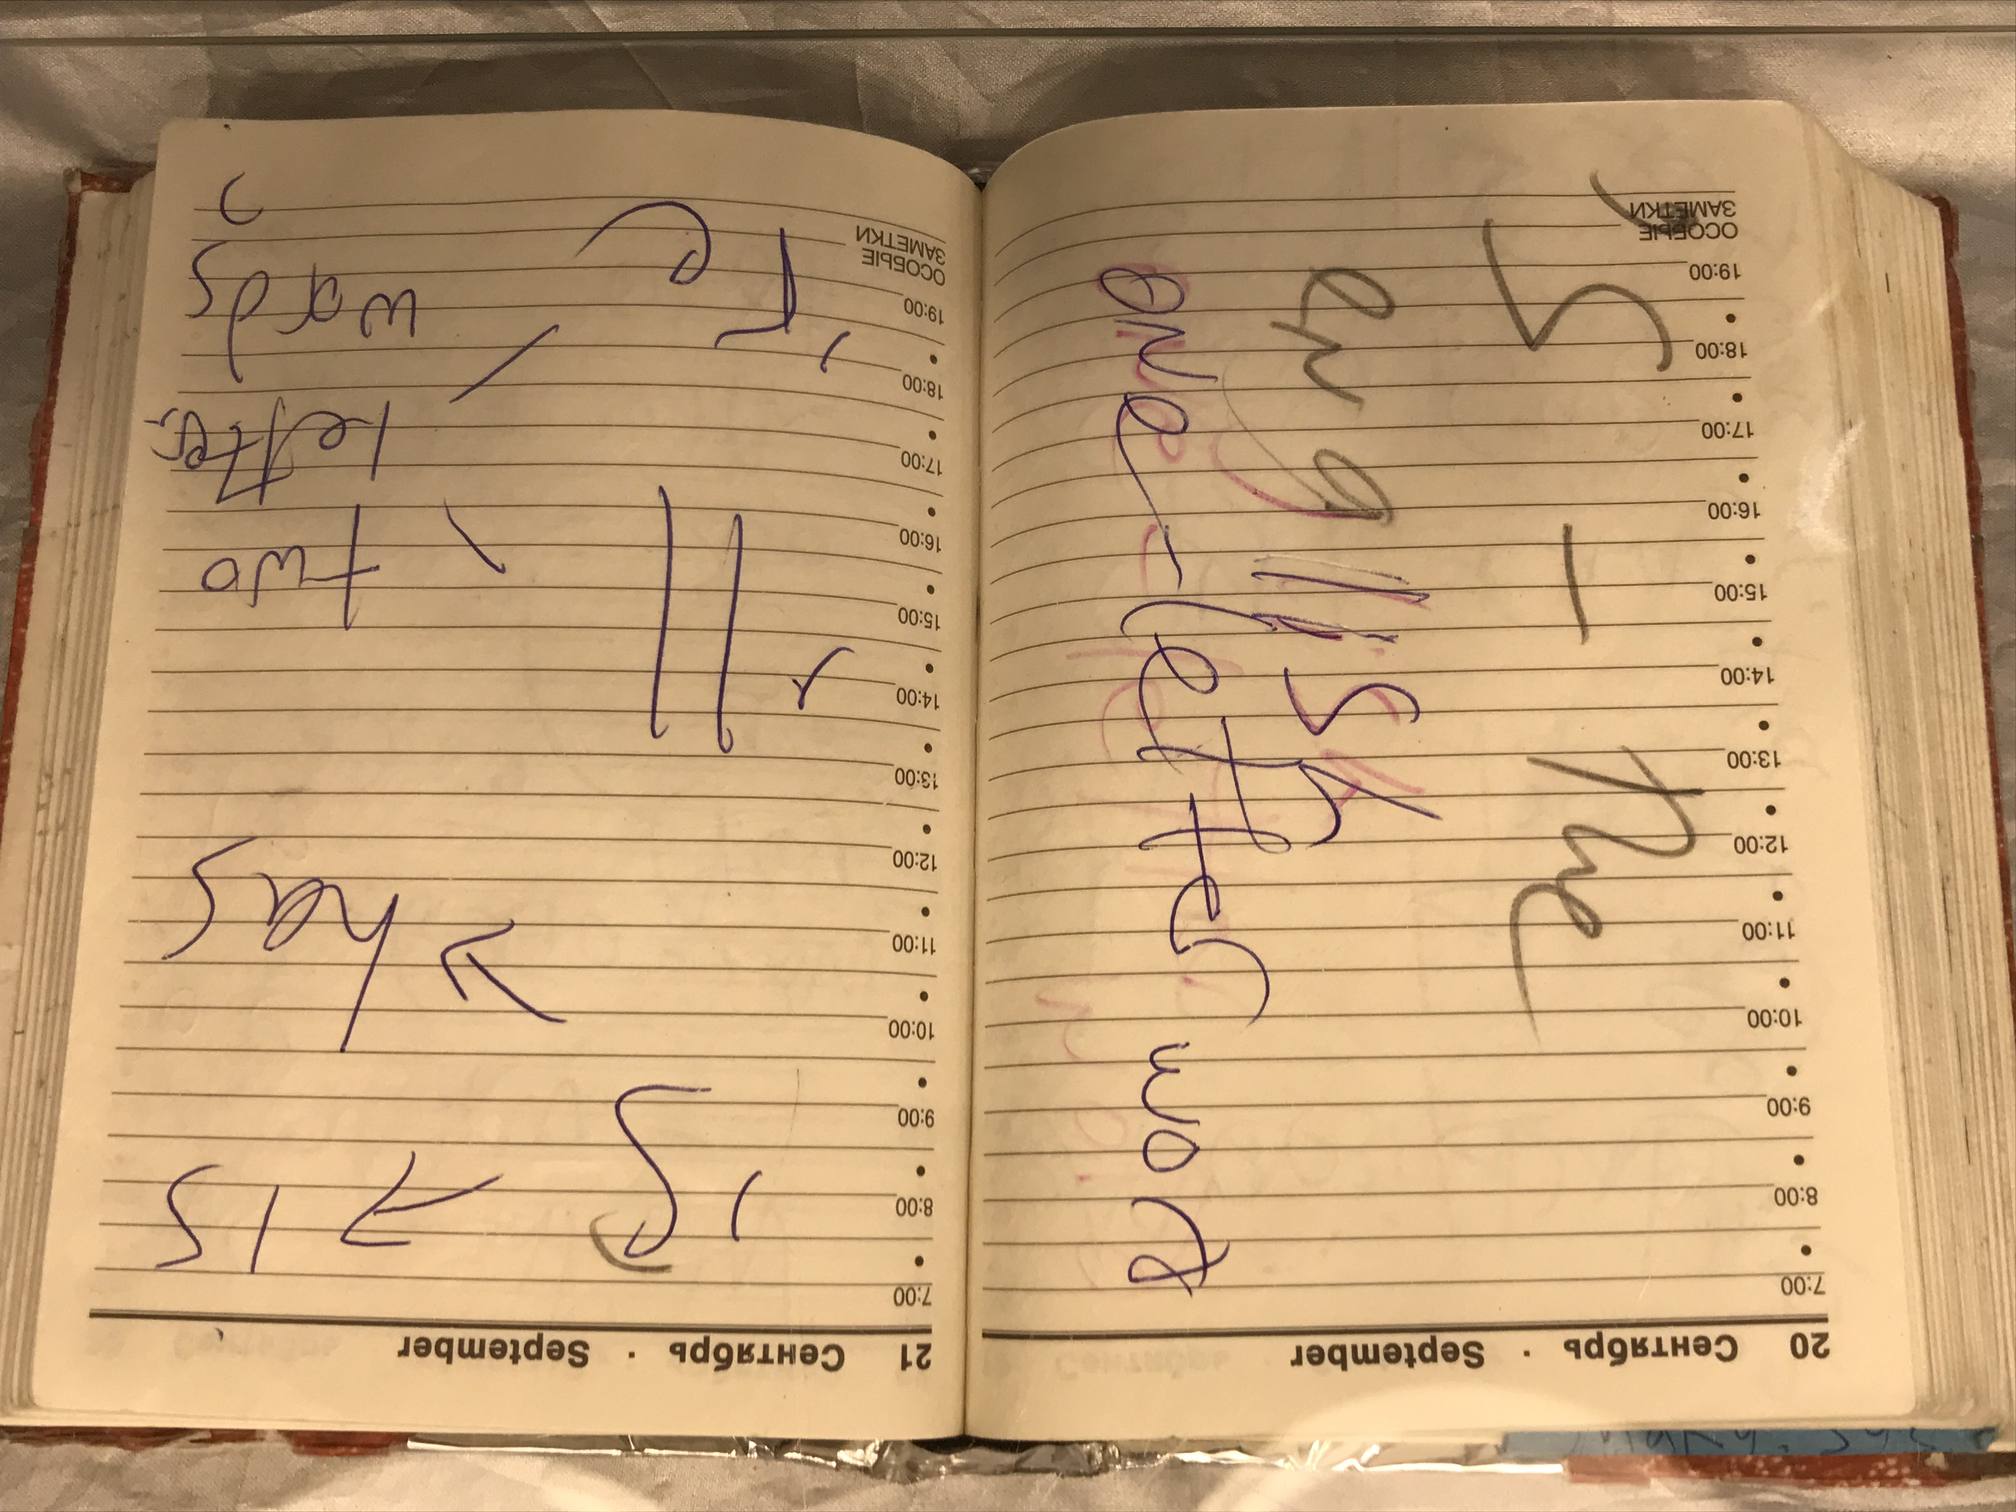 20 Сентябрь · September
7:00
8:00
9:00
10:00
11:00
12:00
13:00
14:00
15:00
16:00
17:00
18:00
19:00
ОСОБЫЕ
ЗАМЕТКИ
's - the
english
one-letter word
21 Сентябрь · September
7:00
8:00
9:00
10:00
11:00
12:00
13:00
14:00
15:00
16:00
17:00
18:00
19:00
ОСОБЫЕ
ЗАМЕТКИ
's → is
→ has
'll
two
letter
're
words